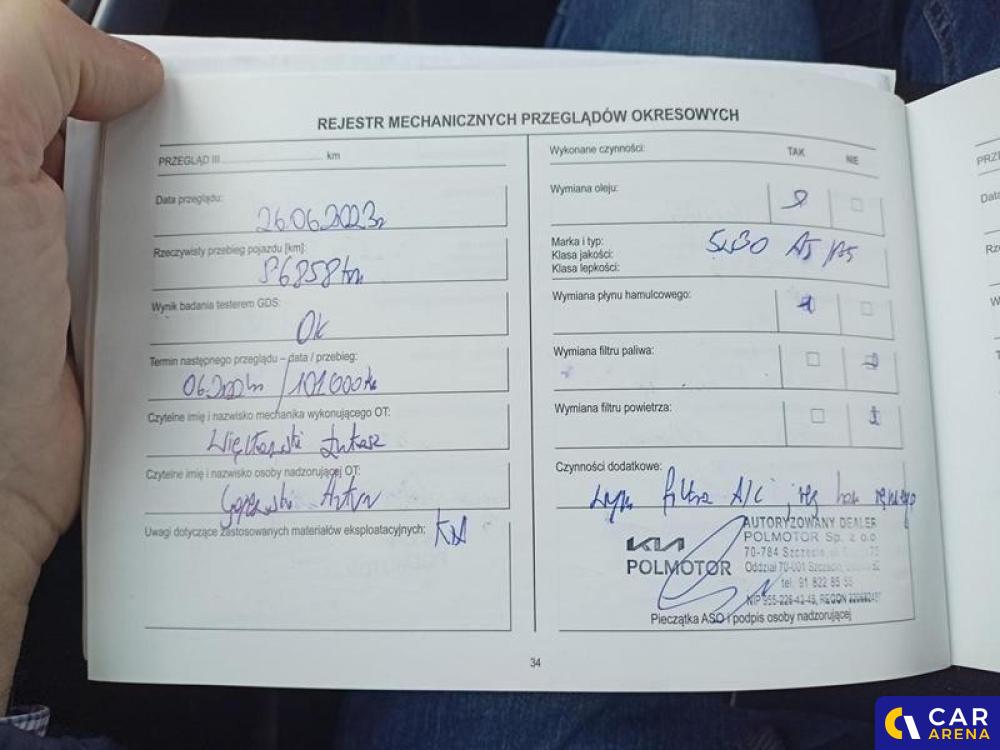 REJESTR MECHANICZNYCH PRZEGLĄDÓW OKRESOWYCH
PRZEGLĄD III km
Data przeglądu:
26.06.2023r
Rzeczywisty przebieg pojazdu [km]:
86858 km
Wynik badania testerem GDS:
Ok
Termin następnego przeglądu – data / przebieg:
06. / 101000km
Czytelne imię i nazwisko mechanika wykonującego OT:
Łukasz
Czytelne imię i nazwisko osoby nadzorującej OT:
Artur
Uwagi dotyczące zastosowanych materiałów eksploatacyjnych:
Wykonane czynności: TAK NIE
Wymiana oleju:
Marka i typ: 5w30 A5/B5
Klasa jakości:
Klasa lepkości:
Wymiana płynu hamulcowego:
Wymiana filtru paliwa:
Wymiana filtru powietrza:
Czynności dodatkowe:
filtra A/C, reg ham ręcznego
KIA
POLMOTOR
AUTORYZOWANY DEALER
POLMOTOR Sp. z o.o
70-784 Szczecin,
Oddział 70-001 Szczecin,
tel. 91 822 85 55
NIP 955-226-42-43, REGON
Pieczątka ASO i podpis osoby nadzorującej
34
PRZE
Data
Rze
W
T
CAR
ARENA